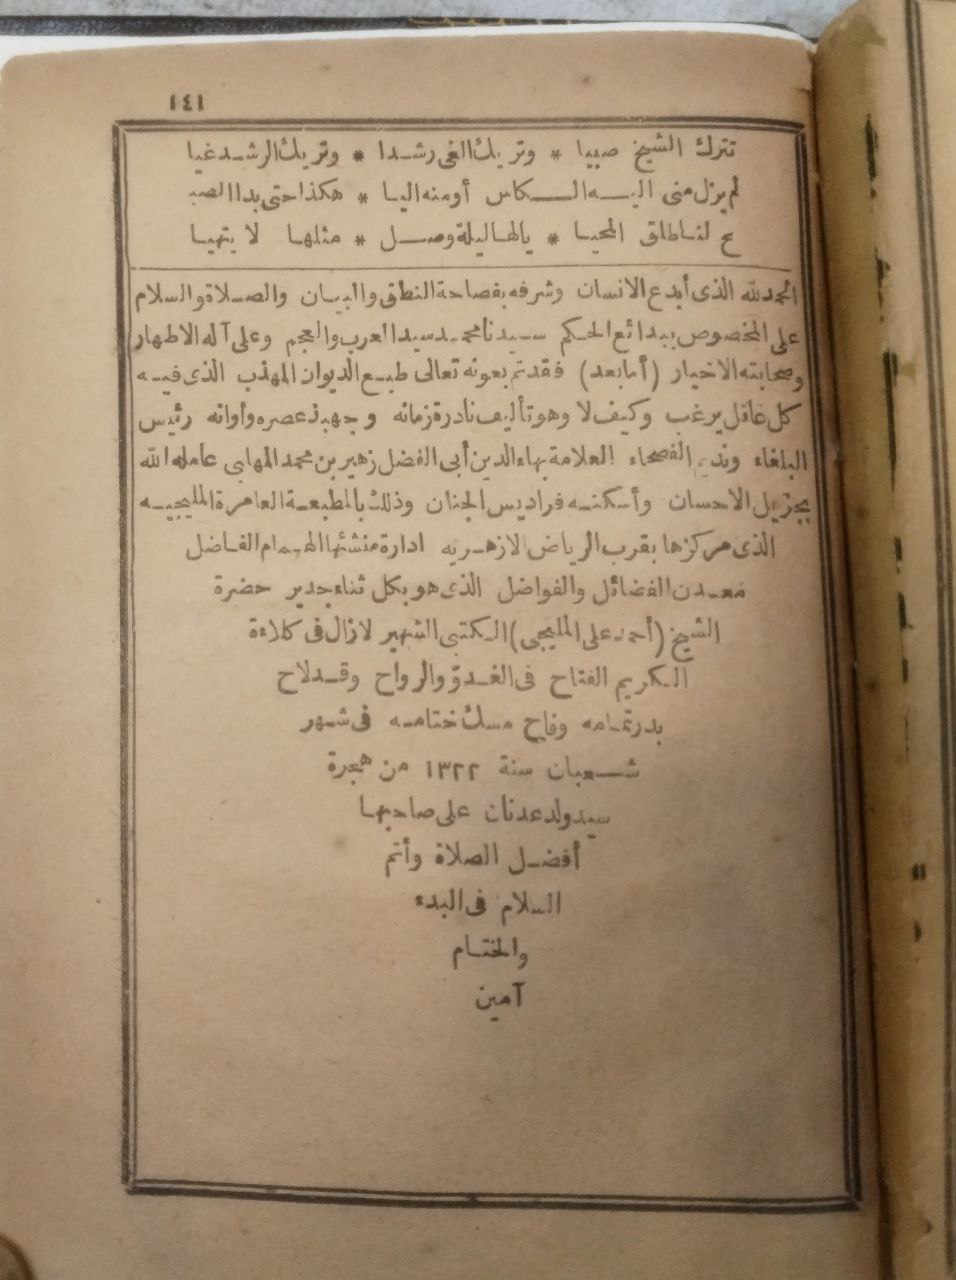 ١٤١
تترك الشيخ صبيا * وتريك الغى رشدا * وتريك الرشد غيا
لم يزل منى اليه الكاس أو منه اليا * هكذا حتى بدا الصبـ
ـح لنا طلق المحيا * يالها ليلة وصل * مثلها لا يتهيا
الحمد لله الذى أبدع الانسان وشرفه بفصاحة النطق والبيان والصلاة والسلام
على المخصوص ببدائع الحكم سيدنا محمد سيد العرب والعجم وعلى آله الاطهار
وصحابته الاخيار (أما بعد) فقد تم بعونه تعالى طبع الديوان المهذب الذى فيه
كل عاقل يرغب وكيف لا وهو تأليف نادرة زمانه وجهبذ عصره وأوانه رئيس
البلغاء ونديم الفصحاء العلامة بهاء الدين أبى الفضل زهير بن محمد المهابى عامله الله
بجزيل الاحسان وأسكنه فراديس الجنان وذلك بالمطبعة العامرة المليجيه
الذى مركزها بقرب الرياض الازهريه ادارة منشئها الهمام الفاضل
معدن الفضائل والفواضل الذى هو بكل ثناء جدير حضرة
الشيخ (أحمد على المليجى) الكتبى الشهير لازال فى كلاءة
الكريم الفتاح فى الغدوّ والرواح وقد لاح
بدر تمامه وفاح مسك ختامه فى شهر
شعبان سنة ١٣٢٢ من هجرة
سيد ولد عدنان على صاحبها
أفضل الصلاة وأتم
السلام فى البدء
والختام
آمين